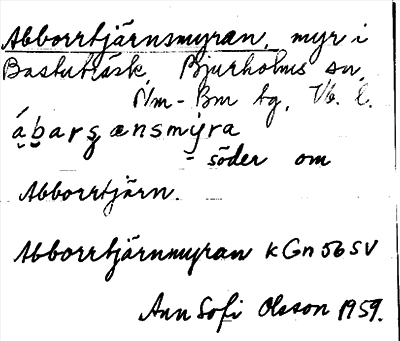 Abborrtjärnsmyran, myr i
Bastuträsk, Bjurholms sn,
N/m-Bm tg, Vb. l.
ábarçænsmýra
- söder om
Abborrtjärn.
Abborrtjärnmyran kGn 56 SV
Ann Sofi Olsson 1959.